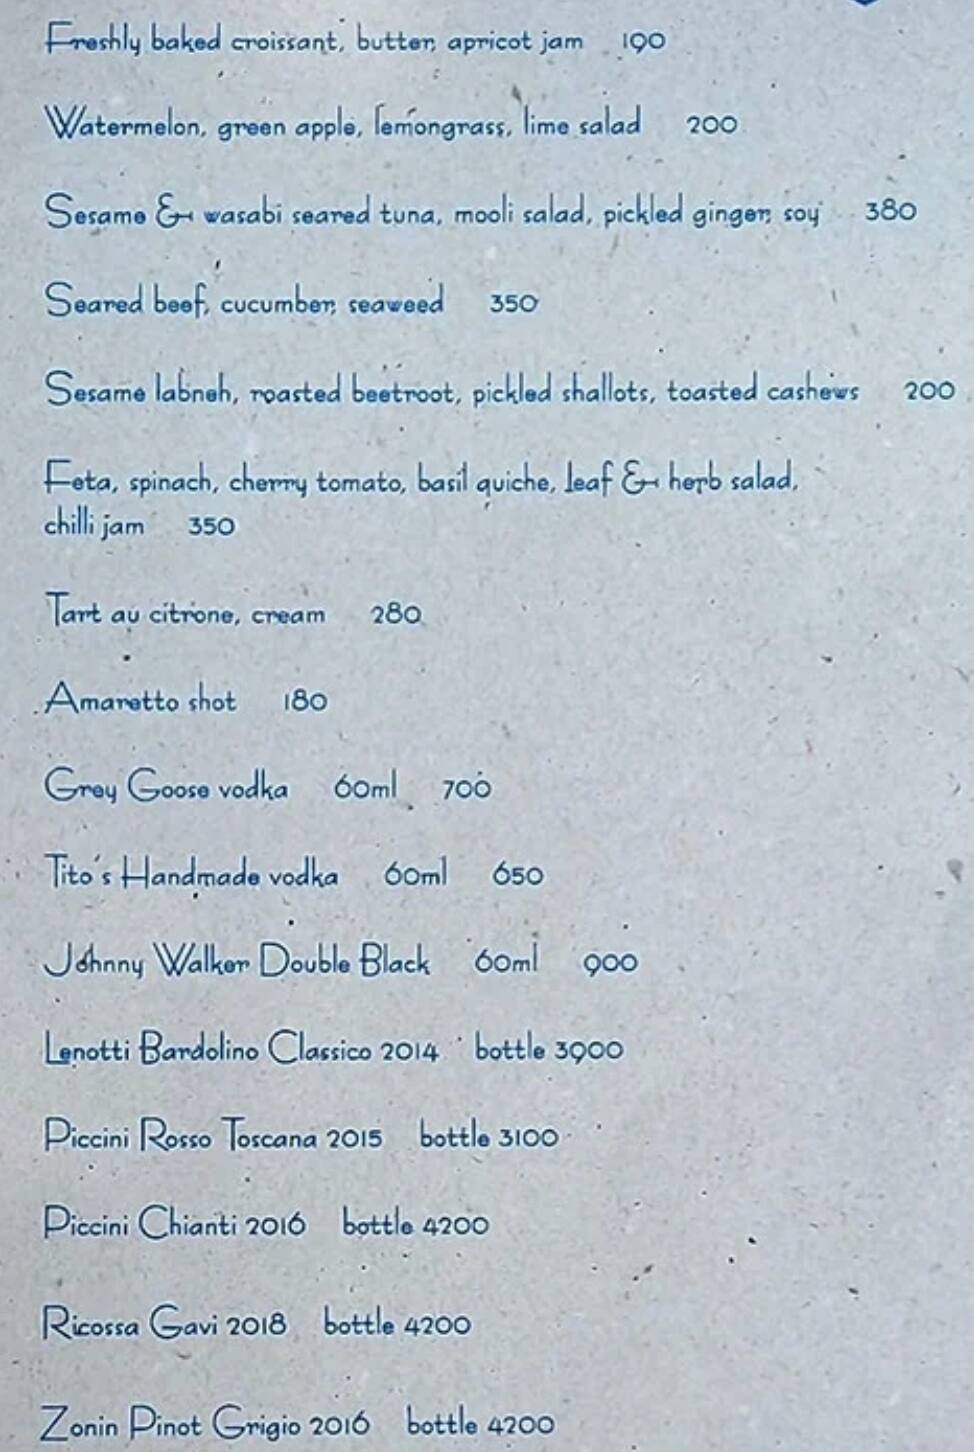 Freshly baked croissant, butter, apricot jam 190
Watermelon, green apple, lemongrass, lime salad 200
Sesame & wasabi seared tuna, mooli salad, pickled ginger, soy 380
Seared beef, cucumber, seaweed 350
Sesame labneh, roasted beetroot, pickled shallots, toasted cashews 200
Feta, spinach, cherry tomato, basil quiche, leaf & herb salad,
chilli jam 350
Tart au citrone, cream 280
Amaretto shot 180
Grey Goose vodka 60ml 700
Tito's Handmade vodka 60ml 650
Johnny Walker Double Black 60ml 900
Lenotti Bardolino Classico 2014 bottle 3900
Piccini Rosso Toscana 2015 bottle 3100
Piccini Chianti 2016 bottle 4200
Ricossa Gavi 2018 bottle 4200
Zonin Pinot Grigio 2016 bottle 4200